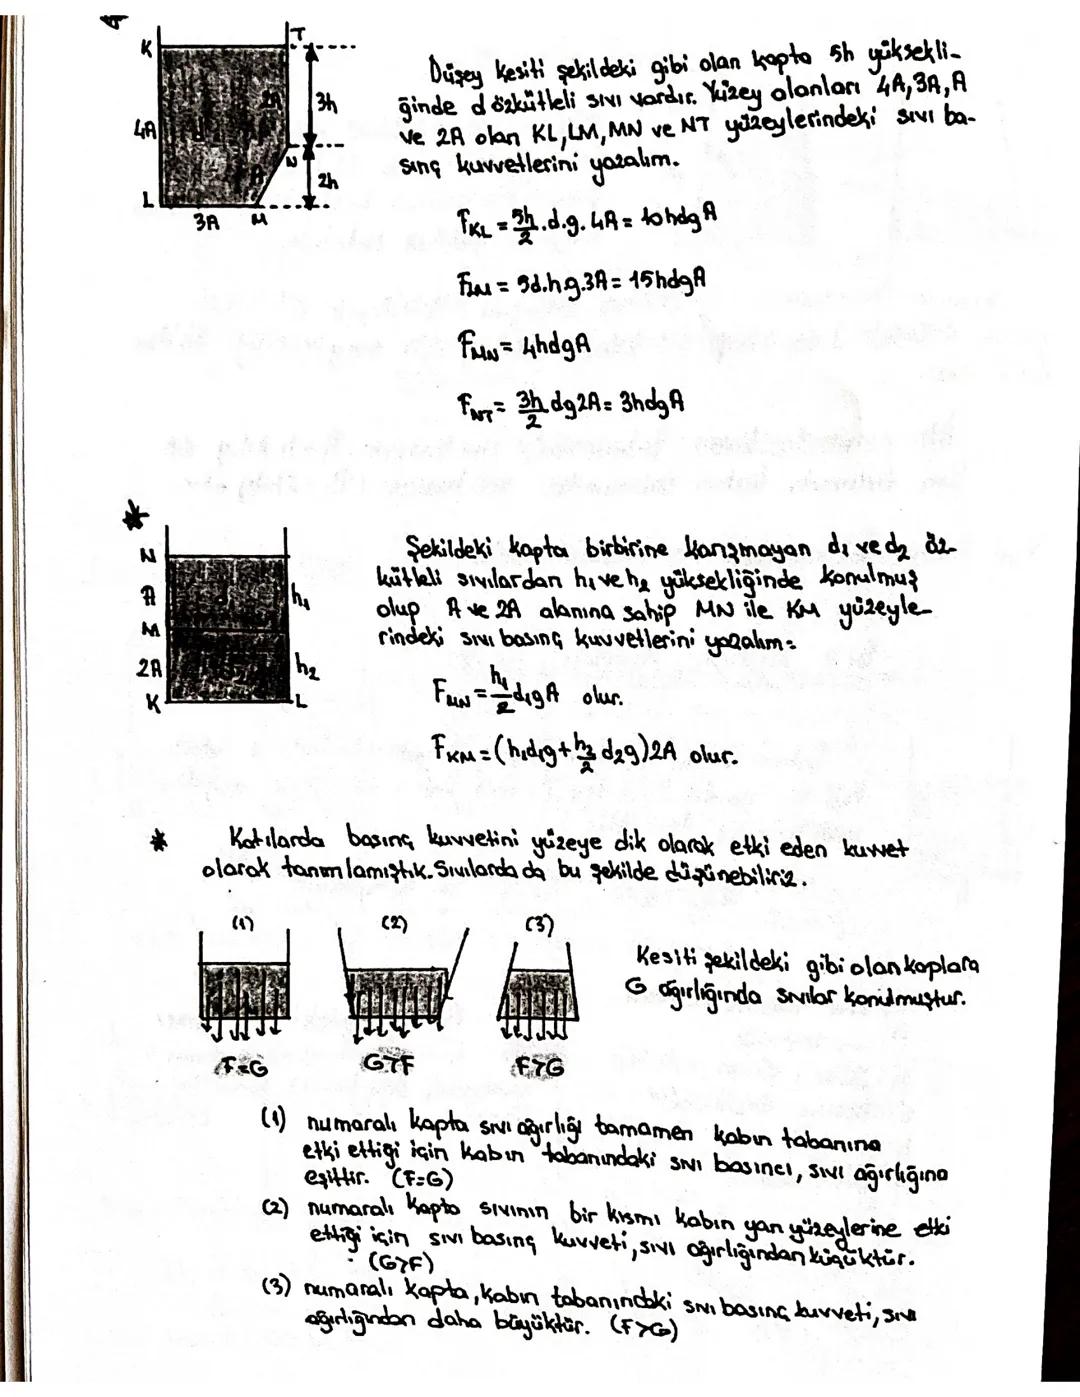 K
T
2A
3h
4A
N
A
2h
L
3A
M
Düşey kesiti şekildeki gibi olan kapta 5h yüksekli-
ğinde d özkütleli sıvı vardır. Yüzey alanları 4A, 3A, A
ve 2A olan KL, LM, MN ve NT yüzeylerindeki sıvı ba-
sınç kuvvetlerini yazalım.
F_KL = 5h/2 .d.g. 4A = 10hdgA
F_LM = 5d.h.g.3A = 15hdgA
F_MN = 4hdgA
F_NT = 3h/2 dg2A = 3hdgA
*
N
A
h₁
M
2A
h₂
K
L
Şekildeki kapta birbirine karışmayan d₁ ve d₂ öz-
kütleli sıvılardan h₁ ve h₂ yüksekliğinde konulmuş
olup A ve 2A alanına sahip MN ile KM yüzeyle-
rindeki sıvı basınç kuvvetlerini yazalım:
F_MN = h₁/2 d₁gA olur.
F_KM = (h₁d₁g + h₂/2 d₂g)2A olur.
* Katılarda basınç kuvvetini yüzeye dik olarak etki eden kuvvet
olarak tanımlamıştık. Sıvılarda da bu şekilde düşünebiliriz.
(1) (2) (3)
Kesiti şekildeki gibi olan kaplara
G ağırlığında sıvılar konulmuştur.
F=G G>F F>G
(1) numaralı kapta sıvı ağırlığı tamamen kabın tabanına
etki ettiği için kabın tabanındaki sıvı basıncı, sıvı ağırlığına
eşittir. (F=G)
(2) numaralı kapta sıvının bir kısmı kabın yan yüzeylerine etki
ettiği için sıvı basınç kuvveti, sıvı ağırlığından küçüktür.
(G>F)
(3) numaralı kapta, kabın tabanındaki sıvı basınç kuvveti, sıvı
ağırlığından daha büyüktür. (F>G)